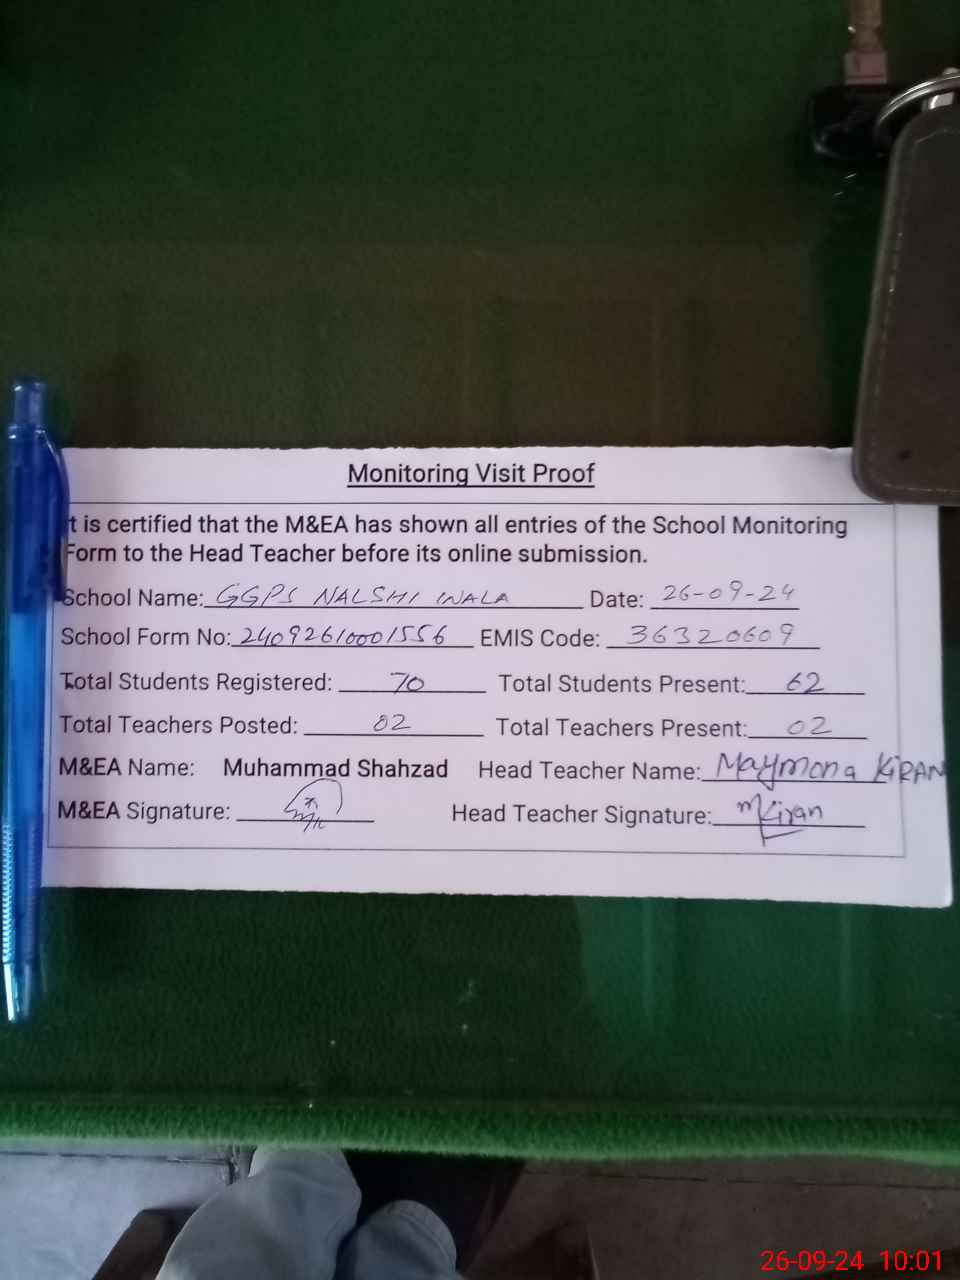 Monitoring Visit Proof
t is certified that the M&EA has shown all entries of the School Monitoring
Form to the Head Teacher before its online submission.
School Name: GGPS NALSHI WALA Date: 26-09-24
School Form No: 24092610001556 EMIS Code: 36320609
Total Students Registered: 70 Total Students Present: 62
Total Teachers Posted: 02 Total Teachers Present: 02
M&EA Name: Muhammad Shahzad Head Teacher Name: Maymona KIRAN
M&EA Signature: Head Teacher Signature: mKiran
26-09-24 10:01